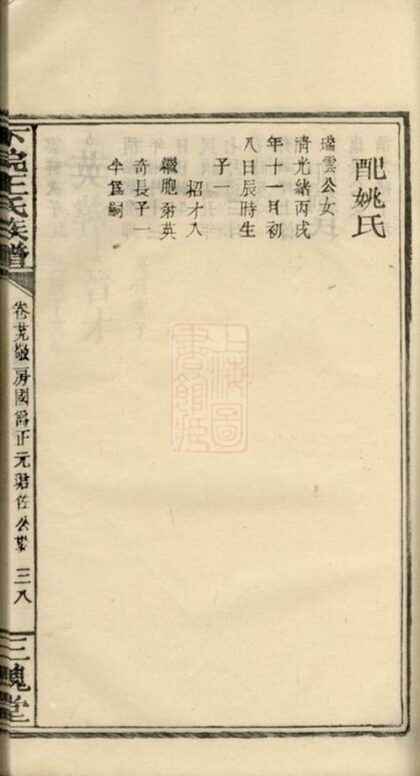 配姚氏
瑞雲公女
清光緒丙戌
年十一月初
八日辰時生
子一
招才入
繼胞弟英
奇長子一
半爲嗣
上海圖
書館藏
王氏族譜
敬房國爵正元珺佐公
三八
三槐堂